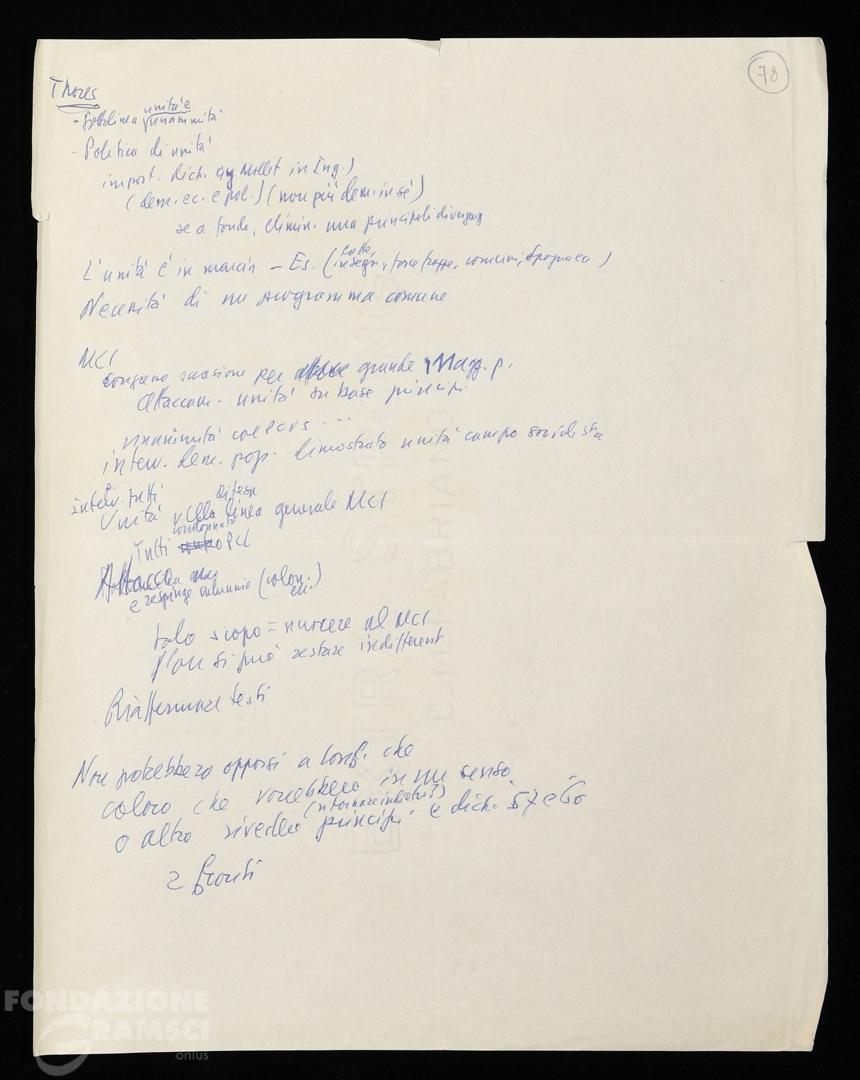 78
Thorez
- Sottolinea unità e
unanimità
- Politica di unità
import. dich. Mollet in Ing.)
(dem. ec. e pol.) (non più dem. in sé)
se a fondo, elimin. una principali diverg
L'unità è in marcia - Es. (lotte,
insegn., comuni, Spagna ecc)
Necessità di un programma comune
MCI
Congresso occasione per grande Magg. p.
attaccam. unità su base principi
unanimità col PCUS ...
interv. dem. pop. dimostrato unità campo socialista
interv. tutti
Unità nella difesa linea generale MCI
Tutti condannato PCC
Attacco
e respinge calunnie (colon.)
ecc.
solo scopo = nuocere al MCI
Non si può restare indifferent
Riaffermare testi
Non potrebbero opporsi a conf. che
coloro che vorrebbero in un senso
o altro rivedere principi e dich. 57 e 60
(ritornare indietro?)
2 fronti
FONDAZIONE
GRAMSCI
onlus